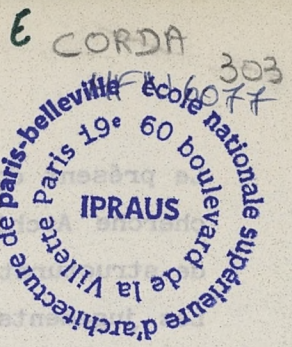 E
CORDA
303
école nationale supérieure d'architecture de paris-belleville
60 boulevard de la Villette Paris 19e
IPRAUS